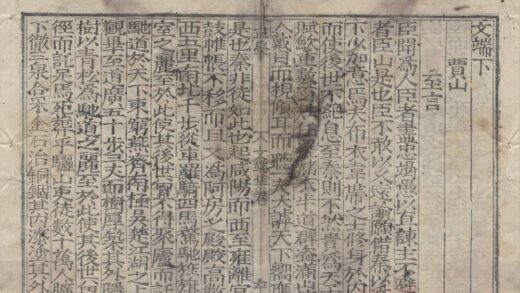 文端下
賈山
至言
臣聞為人臣者盡忠竭愚以直諫主不避
者臣山是也臣不敢以久遠諭願借秦以
下少加意焉夫布衣韋帶之士修身於內
而使後世不絕息至秦則不然貴為天
賦斂重數百赭衣半道群盜滿山
人戴目而視傾耳而聽一夫大謼天下嚮應
是也秦非徒如此也起咸陽而西至雍離宮
鼓帷帳不移而具又為阿房之殿殿高數
西五里南北千步從車羅騎四馬騖馳旌旗
室之麗至於此使其後世曾不得聚廬而託
馳道於天下東窮燕齊南極吳楚江湖之
觀畢至道廣五十步三丈而樹厚築其外隱
樹以青松為馳道之麗至於此使其後世曾
徑而託足焉死葬乎驪山吏徒數十萬人曠
下徹三泉合采金石冶銅錮其內漆塗其外